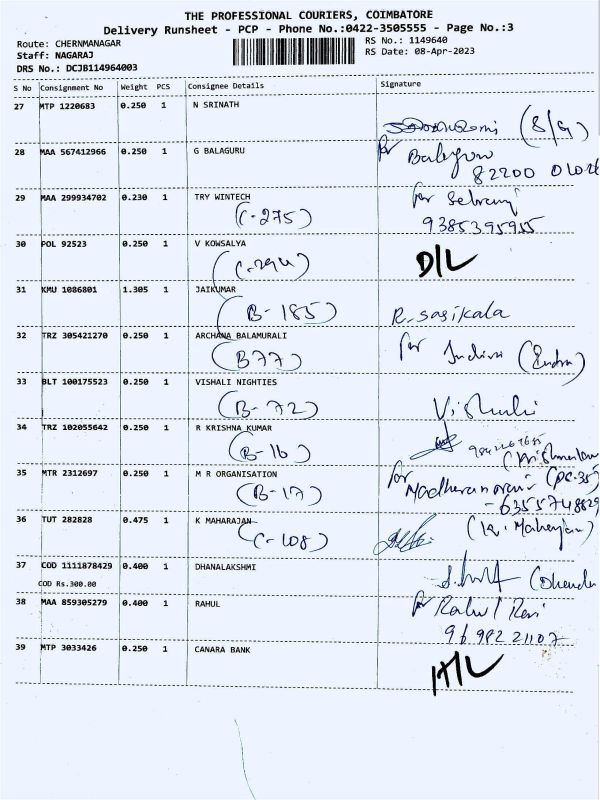 THE PROFESSIONAL COURIERS, COIMBATORE
Delivery Runsheet - PCP - Phone No.:0422-3505555 - Page No.:3
Route: CHERNMANAGAR RS No.: 1149640
Staff: NAGARAJ RS Date: 08-Apr-2023
DRS No.: DCJB114964003
S No Consignment No Weight PCS Consignee Details Signature
27 MTP 1220683 0.250 1 N SRINATH
(S/G)
28 MAA 567412966 0.250 1 G BALAGURU for Balaguru
82200
29 MAA 299934702 0.230 1 TRY WINTECH for Selvaraj
(C-275) 9385395955
30 POL 92523 0.250 1 V KOWSALYA
(C-294) D/L
31 KMU 1086801 1.305 1 JAIKUMAR
(B-185) R. Sasikala
32 TRZ 305421270 0.250 1 ARCHANA BALAMURALI for
(B77)
33 BLT 100175523 0.250 1 VISHALI NIGHTIES
(B-72)
34 TRZ 102055642 0.250 1 R KRISHNA KUMAR
(B-16)
35 MTR 2312697 0.250 1 M R ORGANISATION for (PC-35)
(B-17) 6355748829
36 TUT 282828 0.475 1 K MAHARAJAN
(C-108) (K. Maharajan)
37 COD 1111878429 0.400 1 DHANALAKSHMI
COD Rs.300.00
38 MAA 859305279 0.400 1 RAHUL for Rahul Ravi
9698221107
39 MTP 3033426 0.250 1 CANARA BANK
H/L